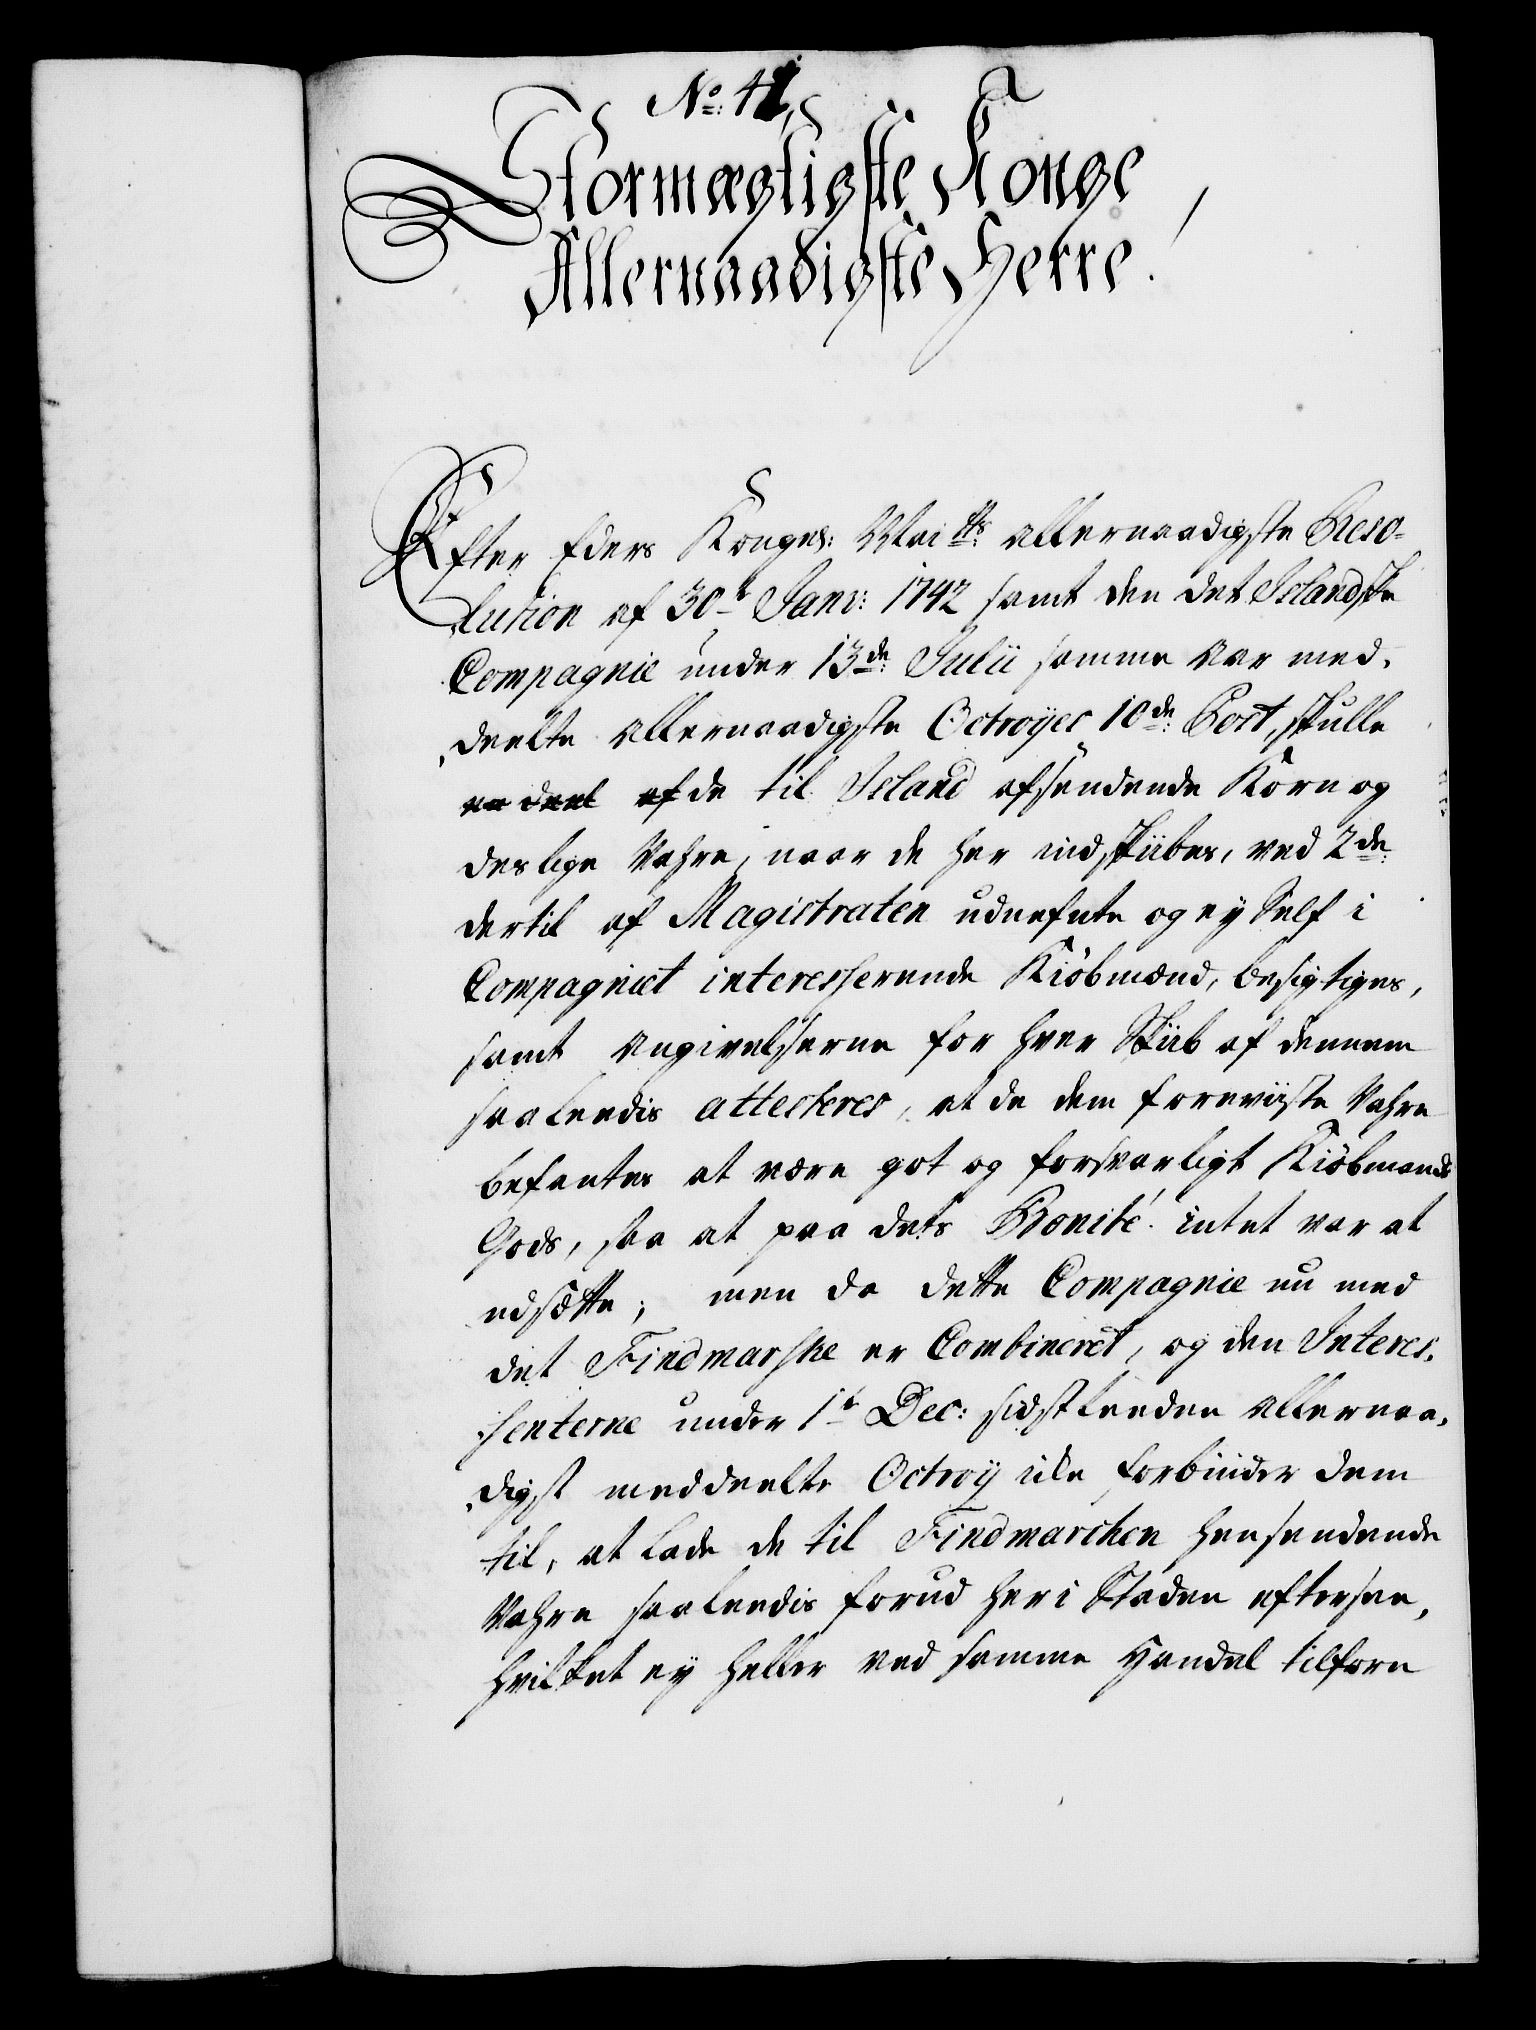 No: 41,
Stormægtigste Konge
Allernaadigste Herre!
Efter Eders Kongel: Mai:ts allernaadigste Reso-
lution af 30te Janv: 1742 samt den det Islandske
Compagnie under 13de: Julii samme Aar med-
deelte allernaadigste Octroyes 10de: Post, skulle
en deel af de til Island afsendende Korn og
deslige Vahre, naar de her indskibes, ved 2de:
dertil af Magistraten udnefnte og ey Self i
Compagniet interesserende Kiöbmænd, besigtiges,
samt Angivelserne for hver Skib af dennem
saaledis attesteres, at de dem foreviiste Vahre
befantes at være got og forsvarligt Kiöbmands
Gods, saa at paa dets Bonité intet var at
udsætte; men da dette Compagnie nu med
det Findmarske er Combineret, og den Interes-
senterne under 1te Dec: sidstleeden allernaa-
digst meddeelte Octroy icke forbinder dem
til, at lade de til Findmarcken hensendende
Vahre saaledis forud her i Staden eftersee,
hvilket ey heller ved samme Handel tilforn